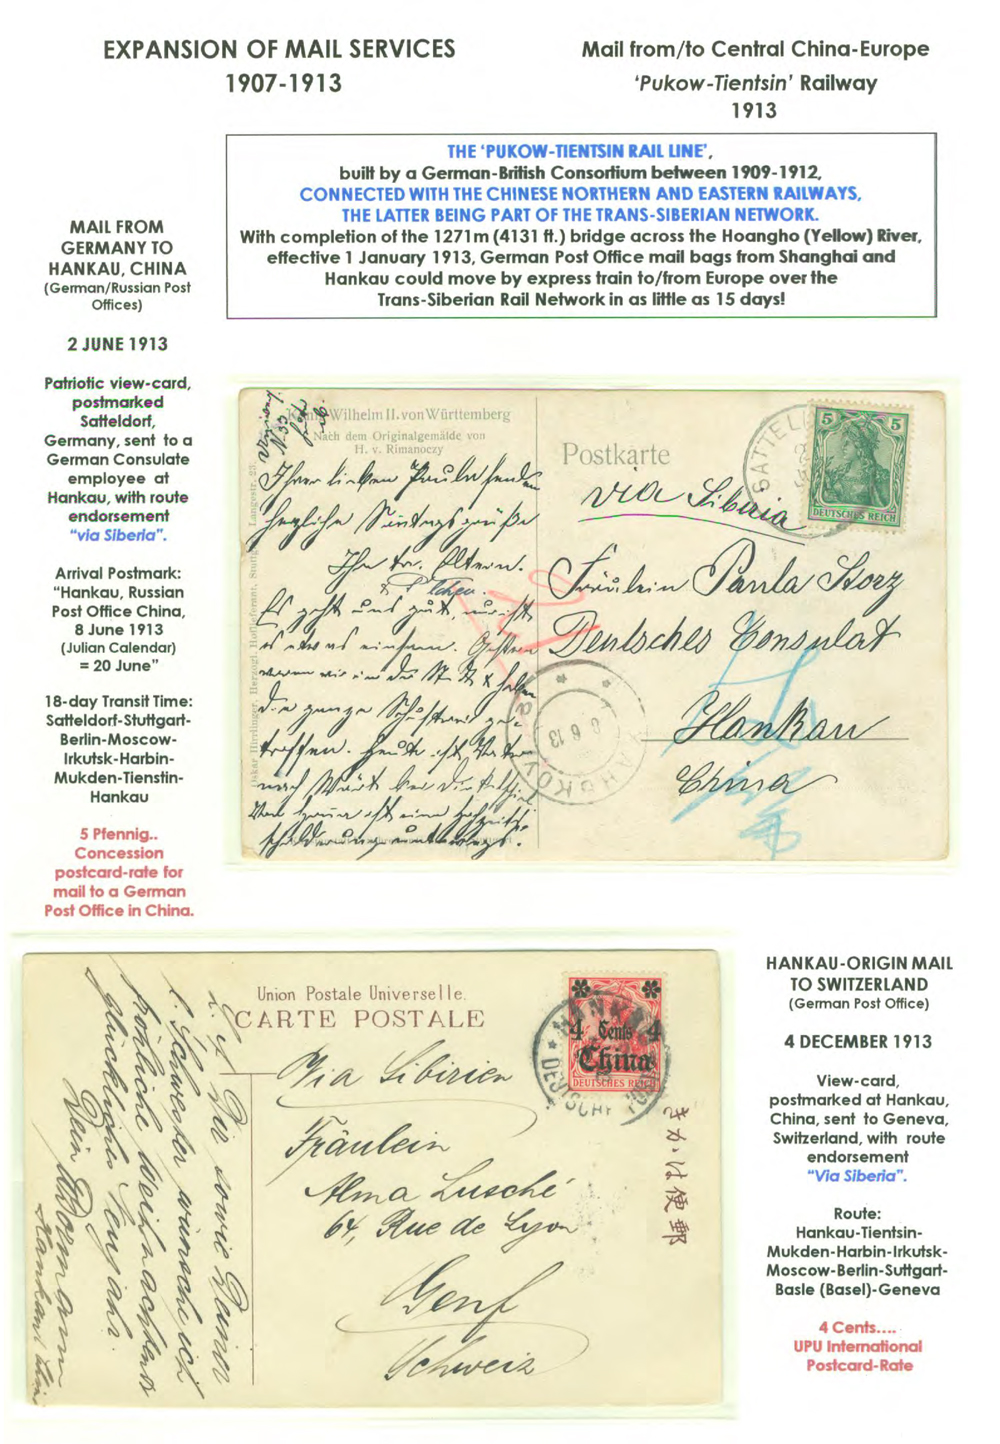 EXPANSION OF MAIL SERVICES
1907-1913
Mail from/to Central China-Europe
'Pukow-Tientsin' Railway
1913
THE 'PUKOW-TIENTSIN RAIL LINE',
built by a German-British Consortium between 1909-1912,
CONNECTED WITH THE CHINESE NORTHERN AND EASTERN RAILWAYS,
THE LATTER BEING PART OF THE TRANS-SIBERIAN NETWORK.
With completion of the 1271m (4131 ft.) bridge across the Hoangho (Yellow) River,
effective 1 January 1913, German Post Office mail bags from Shanghai and
Hankau could move by express train to/from Europe over the
Trans-Siberian Rail Network in as little as 15 days!
MAIL FROM
GERMANY TO
HANKAU, CHINA
(German/Russian Post
Offices)
2 JUNE 1913
Patriotic view-card,
postmarked
Satteldorf,
Germany, sent to a
German Consulate
employee at
Hankau, with route
endorsement
"via Siberia".
Arrival Postmark:
"Hankau, Russian
Post Office China,
8 June 1913
(Julian Calendar)
= 20 June"
18-day Transit Time:
Satteldorf-Stuttgart-
Berlin-Moscow-
Irkutsk-Harbin-
Mukden-Tienstin-
Hankau
5 Pfennig..
Concession
postcard-rate for
mail to a German
Post Office in China.
König Wilhelm II. von Württemberg
Nach dem Originalgemälde von
H. v. Rimanoczy
Ihrer lieben Paula senden
herzliche Sonntagsgrüße
Ihre tr. Eltern.
Es geht uns gut, nur ist
es etwas einsam. Gestern
Postkarte
SATTEL
5 5
DEUTSCHES REICH
via Siberia
Fräulein Paula Storz
Deutsches Consulat
Hankau
China
HANKOW
8 6 13
Union Postale Universelle.
CARTE POSTALE
4 Cents 4
China
DEUTSCHES REICH
HANKAU
DEUTSCHE POST
Via Sibirien
Fräulein
Alma Lusché
64, Rue de Lyon
Genf
Schweiz
きかは便郵
Dir sowie Deiner
l. Schwester wünsche ich
fröhliche Weihnachten &
glückliches Neujahr.
Dein
HANKAU-ORIGIN MAIL
TO SWITZERLAND
(German Post Office)
4 DECEMBER 1913
View-card,
postmarked at Hankau,
China, sent to Geneva,
Switzerland, with route
endorsement
"Via Siberia".
Route:
Hankau-Tientsin-
Mukden-Harbin-Irkutsk-
Moscow-Berlin-Suttgart-
Basle (Basel)-Geneva
4 Cents....
UPU International
Postcard-Rate